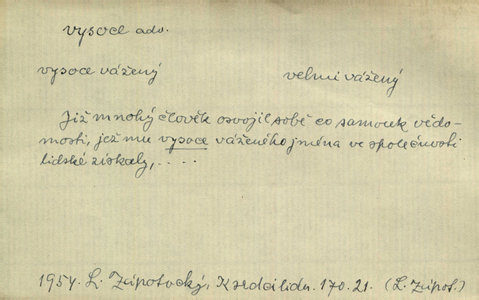 vysoce adv.
vysoce vážený velmi vážený
Již mnohý člověk osvojil sobě co samouk vědo-
mosti, jež mu vysoce váženého jména ve společnosti
lidské získaly, . . . .
1954. L. Zápotocký, K srdci lidu. 170.21. (L. Zápot.)